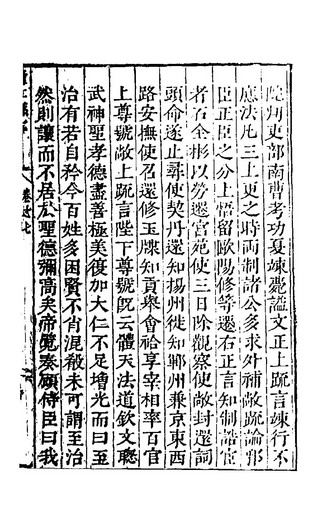 院判吏部南曹考功夏竦薨謚文正上疏言竦行不
應法凡三上更之時兩制諸公多求外補敞疏論邪
臣正臣之分上悟留歐陽修等遷右正言知制誥宦
者石全彬以勞遷官苑使三日除觀察使敞封還詞
頭命遂止尋使契丹還知揚州徙知鄆州兼京東西
路安撫使召還修玉牒知貢舉會祫享宰相率百官
上尊號敞上疏言陛下尊號旣云體天法道欽文聰
武神聖孝德盡善極美復加大仁不足增光而曰至
治有若自矜今百姓多困賢不肖混殽未可謂至治
然則讓而不居於聖德彌高矣帝覽奏顧侍臣曰我